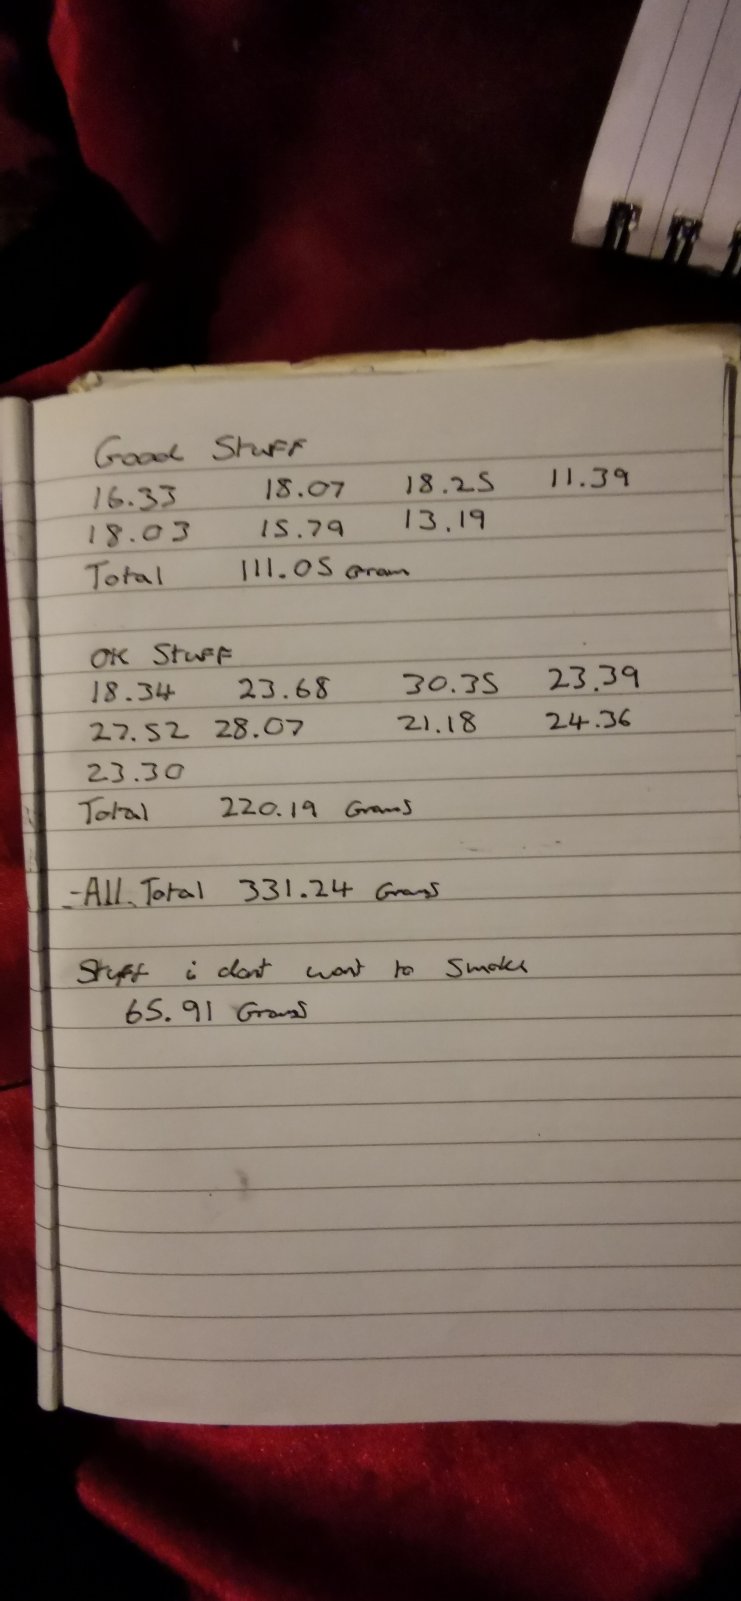 Good Stuff
16.33 18.07 18.25 11.39
18.03 15.79 13.19
Total 111.05 Gram
OK Stuff
18.34 23.68 30.35 23.39
27.52 28.07 21.18 24.36
23.30
Total 220.19 Grams
-All Total 331.24 Grams
Stuff i dont want to Smoke
65.91 Grams